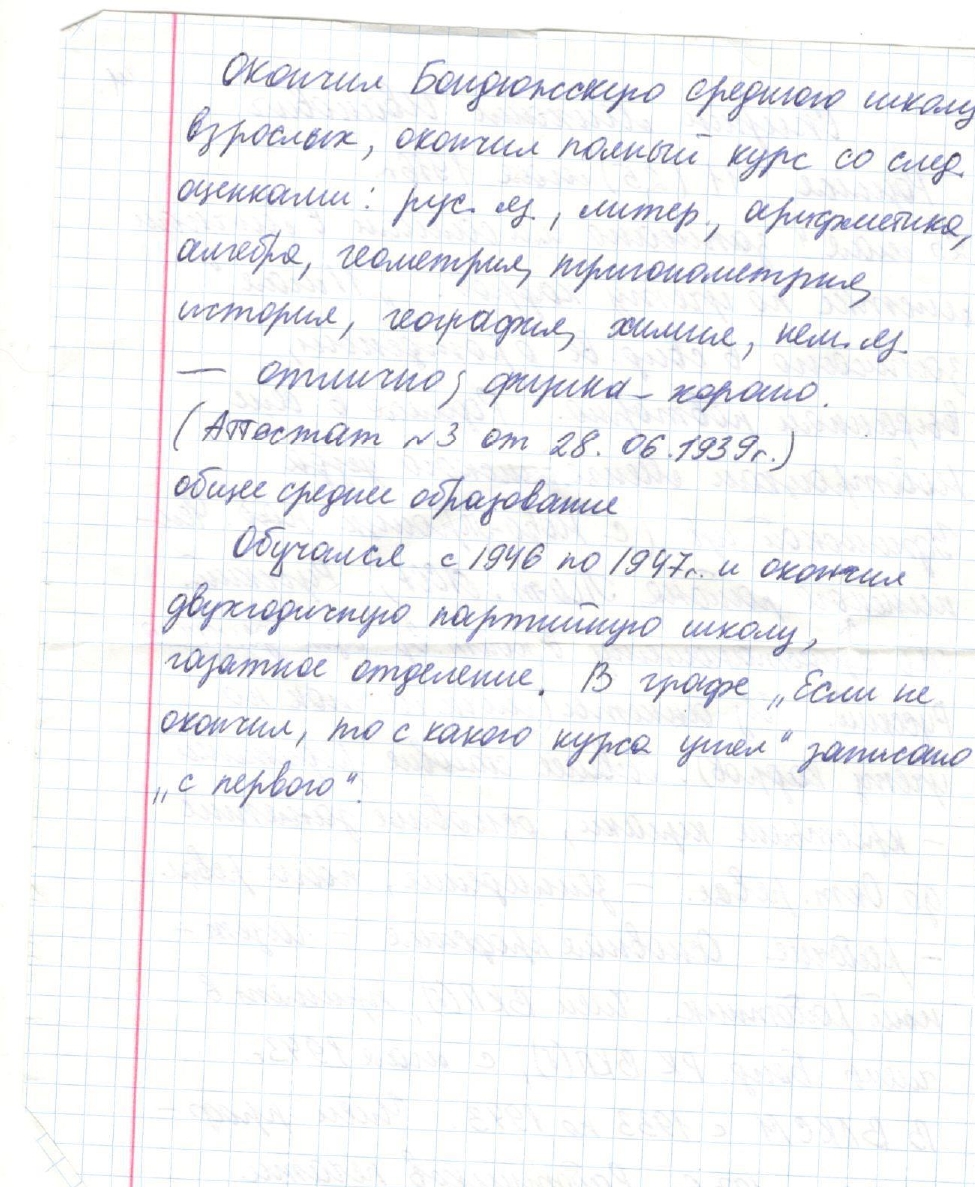 Окончил Бондюжскую среднюю школу
взрослых, окончил полный курс со след.
оценками: рус. яз., литер., арифметика,
алгебра, геометрия, тригонометрия,
история, география, химия, нем. яз.
— отлично; физика – хорошо.
(Аттестат №3 от 28.06.1939г.)
общее среднее образование
Обучался с 1946 по 1947г. и окончил
двухгодичную партийную школу,
газетное отделение. В графе „Если не
окончил, то с какого курса ушел“ записано
„с первого“.